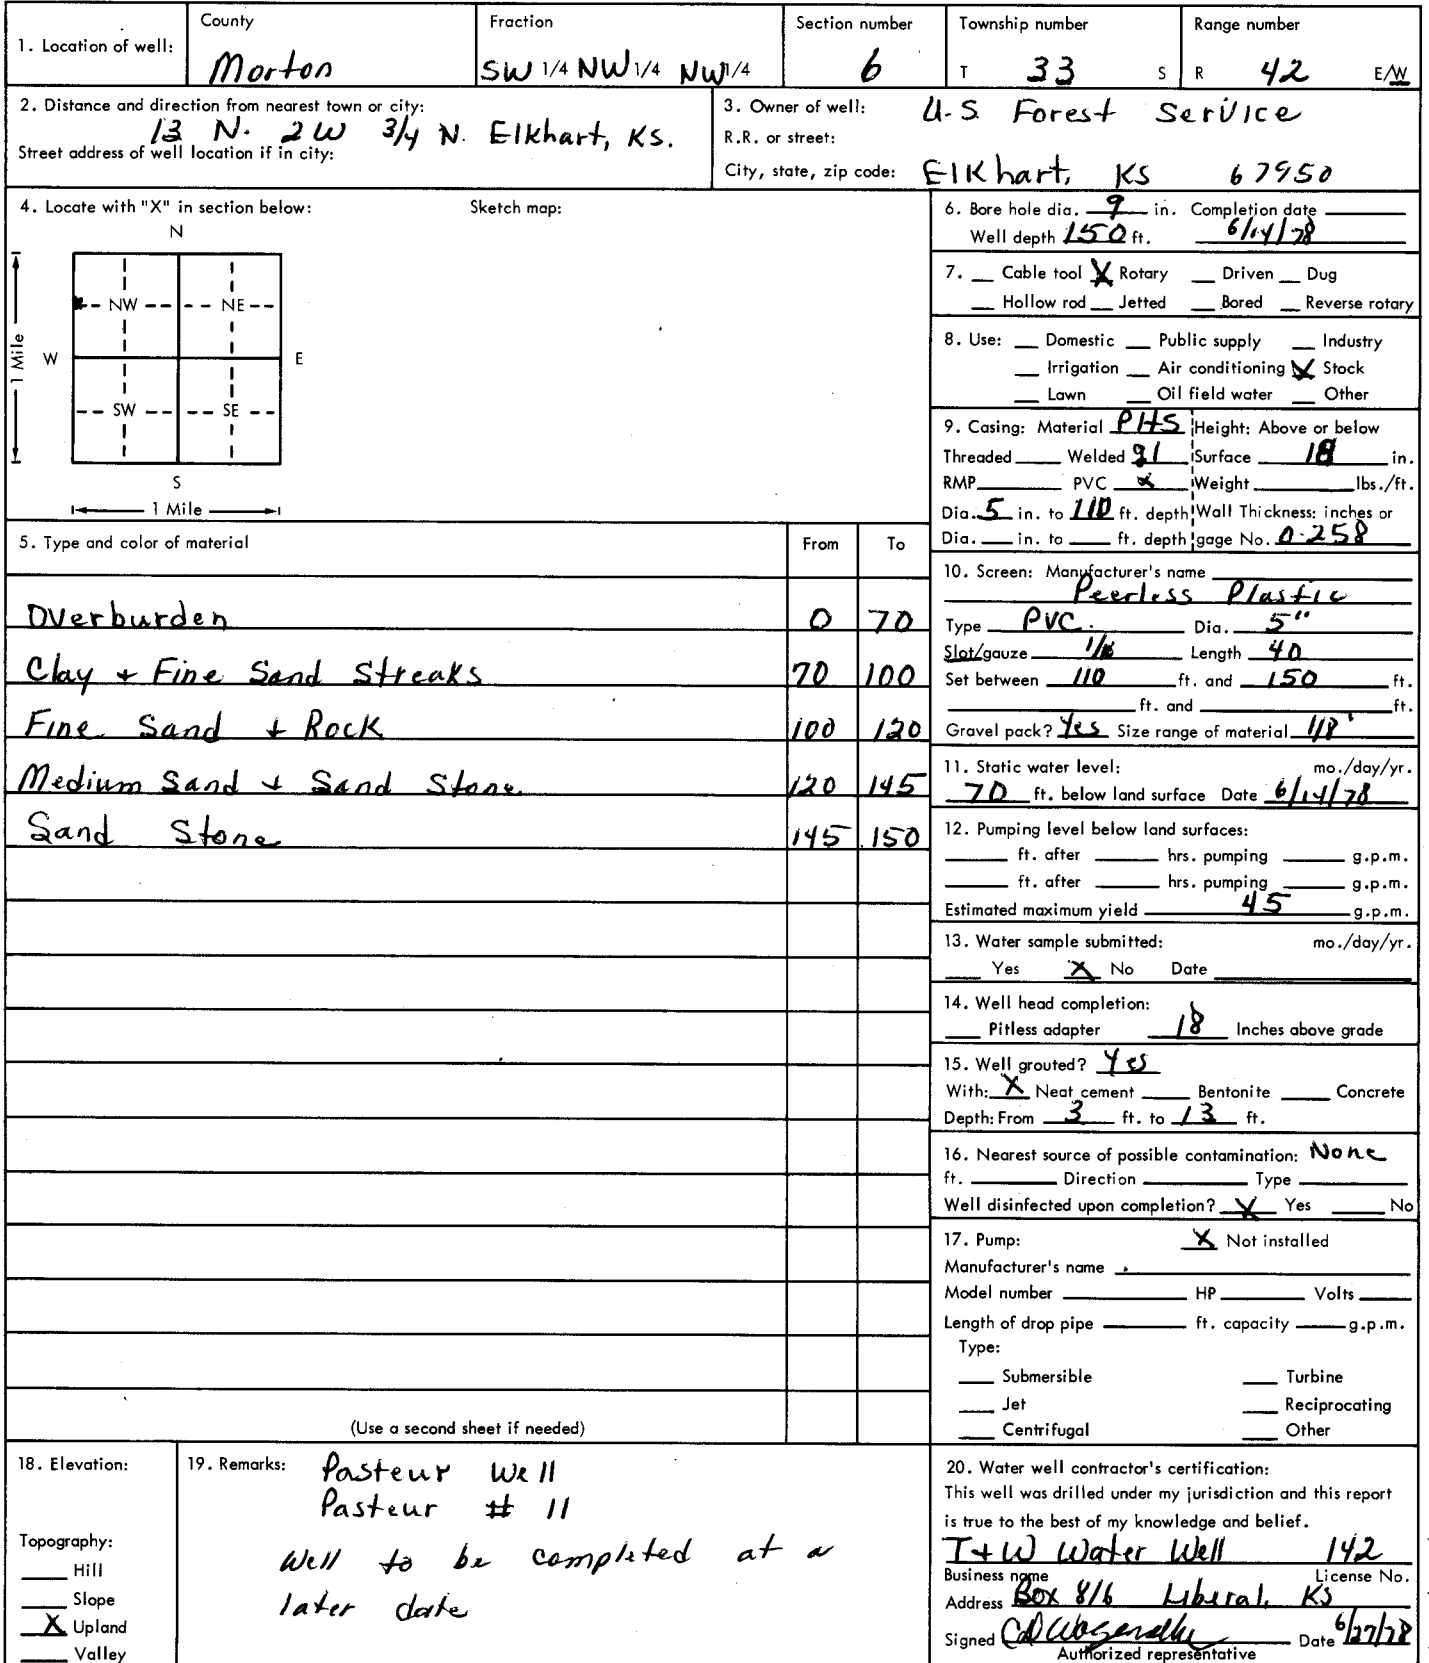 1. Location of well:
County
Morton
Fraction
SW 1/4 NW 1/4 NW 1/4
Section number
6
Township number
T 33 S
Range number
R 42 E/W
2. Distance and direction from nearest town or city:
13 N. 2W 3/4 N. Elkhart, Ks.
Street address of well location if in city:
3. Owner of well: U.S. Forest Service
R.R. or street:
City, state, zip code: Elkhart, KS 67950
4. Locate with "X" in section below: Sketch map:
N
NW NE
W E
1 Mile
SW SE
S
1 Mile
5. Type and color of material From To
Overburden 0 70
Clay + Fine Sand Streaks 70 100
Fine Sand + Rock 100 120
Medium Sand + Sand Stone 120 145
Sand Stone 145 150
(Use a second sheet if needed)
6. Bore hole dia. 9 in. Completion date
Well depth 150 ft. 6/14/78
7. Cable tool X Rotary Driven Dug
Hollow rod Jetted Bored Reverse rotary
8. Use: Domestic Public supply Industry
Irrigation Air conditioning X Stock
Lawn Oil field water Other
9. Casing: Material PHS Height: Above or below
Threaded Welded gl Surface 18 in.
RMP PVC x Weight lbs./ft.
Dia. 5 in. to 110 ft. depth Wall Thickness: inches or
Dia. in. to ft. depth gage No. 0.258
10. Screen: Manufacturer's name
Peerless Plastic
Type PVC. Dia. 5"
Slot/gauze Length 40
Set between 110 ft. and 150 ft.
ft. and ft.
Gravel pack? Yes Size range of material 1/8"
11. Static water level: mo./day/yr.
70 ft. below land surface Date 6/14/78
12. Pumping level below land surfaces:
ft. after hrs. pumping g.p.m.
ft. after hrs. pumping g.p.m.
Estimated maximum yield 45 g.p.m.
13. Water sample submitted: mo./day/yr.
Yes X No Date
14. Well head completion:
Pitless adapter 18 Inches above grade
15. Well grouted? Yes
With: X Neat cement Bentonite Concrete
Depth: From 3 ft. to 13 ft.
16. Nearest source of possible contamination: None
ft. Direction Type
Well disinfected upon completion? X Yes No
17. Pump: X Not installed
Manufacturer's name
Model number HP Volts
Length of drop pipe ft. capacity g.p.m.
Type:
Submersible Turbine
Jet Reciprocating
Centrifugal Other
18. Elevation:
Topography:
Hill
Slope
X Upland
Valley
19. Remarks: Pasteur Well
Pasteur # 11
Well to be completed at a
later date
20. Water well contractor's certification:
This well was drilled under my jurisdiction and this report
is true to the best of my knowledge and belief.
T+W Water Well 142
Business name License No.
Address Box 816 Liberal, Ks
Signed Date 6/27/78
Authorized representative